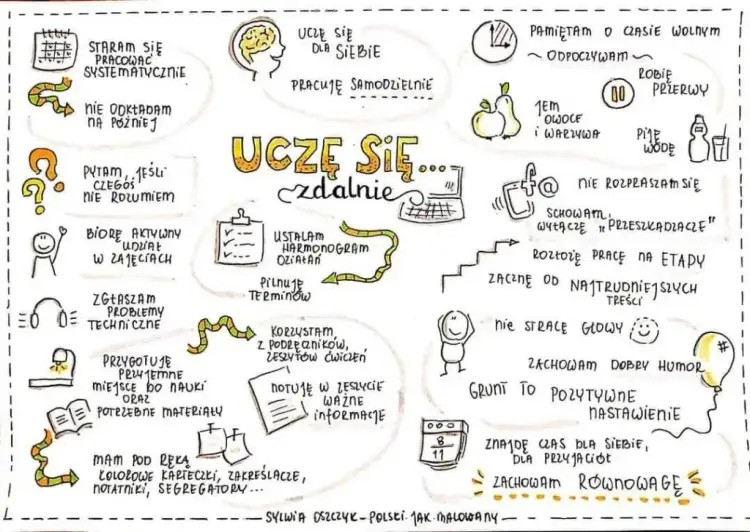 STARAM SIĘ
PRACOWAĆ
SYSTEMATYCZNIE
NIE ODKŁADAM
NA PÓŹNIEJ
PYTAM, JEŚLI
CZEGOŚ
NIE ROZUMIEM
BIORĘ AKTYWNY
UDZIAŁ
W ZAJĘCIACH
ZGŁASZAM
PROBLEMY
TECHNICZNE
PRZYGOTUJĘ
PRZYJEMNE
MIEJSCE DO NAUKI
ORAZ
POTRZEBNE MATERIAŁY
MAM POD RĘKĄ
KOLOROWE KARTECZKI, ZAKREŚLACZE,
NOTATNIKI, SEGREGATORY...
UCZĘ SIĘ
DLA SIEBIE
PRACUJĘ SAMODZIELNIE
UCZĘ SIĘ...
zdalnie
USTALAM
HARMONOGRAM
DZIAŁAŃ
PILNUJĘ
TERMINÓW
KORZYSTAM
Z PODRĘCZNIKÓW,
ZESZYTÓW ĆWICZEŃ
NOTUJĘ W ZESZYCIE
WAŻNE
INFORMACJE
PAMIĘTAM O CZASIE WOLNYM
~ ODPOCZYWAM ~
ROBIĘ
PRZERWY
JEM
OWOCE
I WARZYWA
PIJĘ
WODĘ
f @
NIE ROZPRASZAM SIĘ
SCHOWAM,
WYŁĄCZĘ „PRZESZKADZACZE"
ROZŁOŻĘ PRACĘ NA ETAPY
ZACZNĘ OD NAJTRUDNIEJSZYCH
TREŚCI
NIE STRACĘ GŁOWY
ZACHOWAM DOBRY HUMOR
#
GRUNT TO POZYTYWNE
NASTAWIENIE
8
11
ZNAJDĘ CZAS DLA SIEBIE,
DLA PRZYJACIÓŁ
ZACHOWAM RÓWNOWAGĘ
SYLWIA OSZCZYK - POLSKI JAK MALOWANY